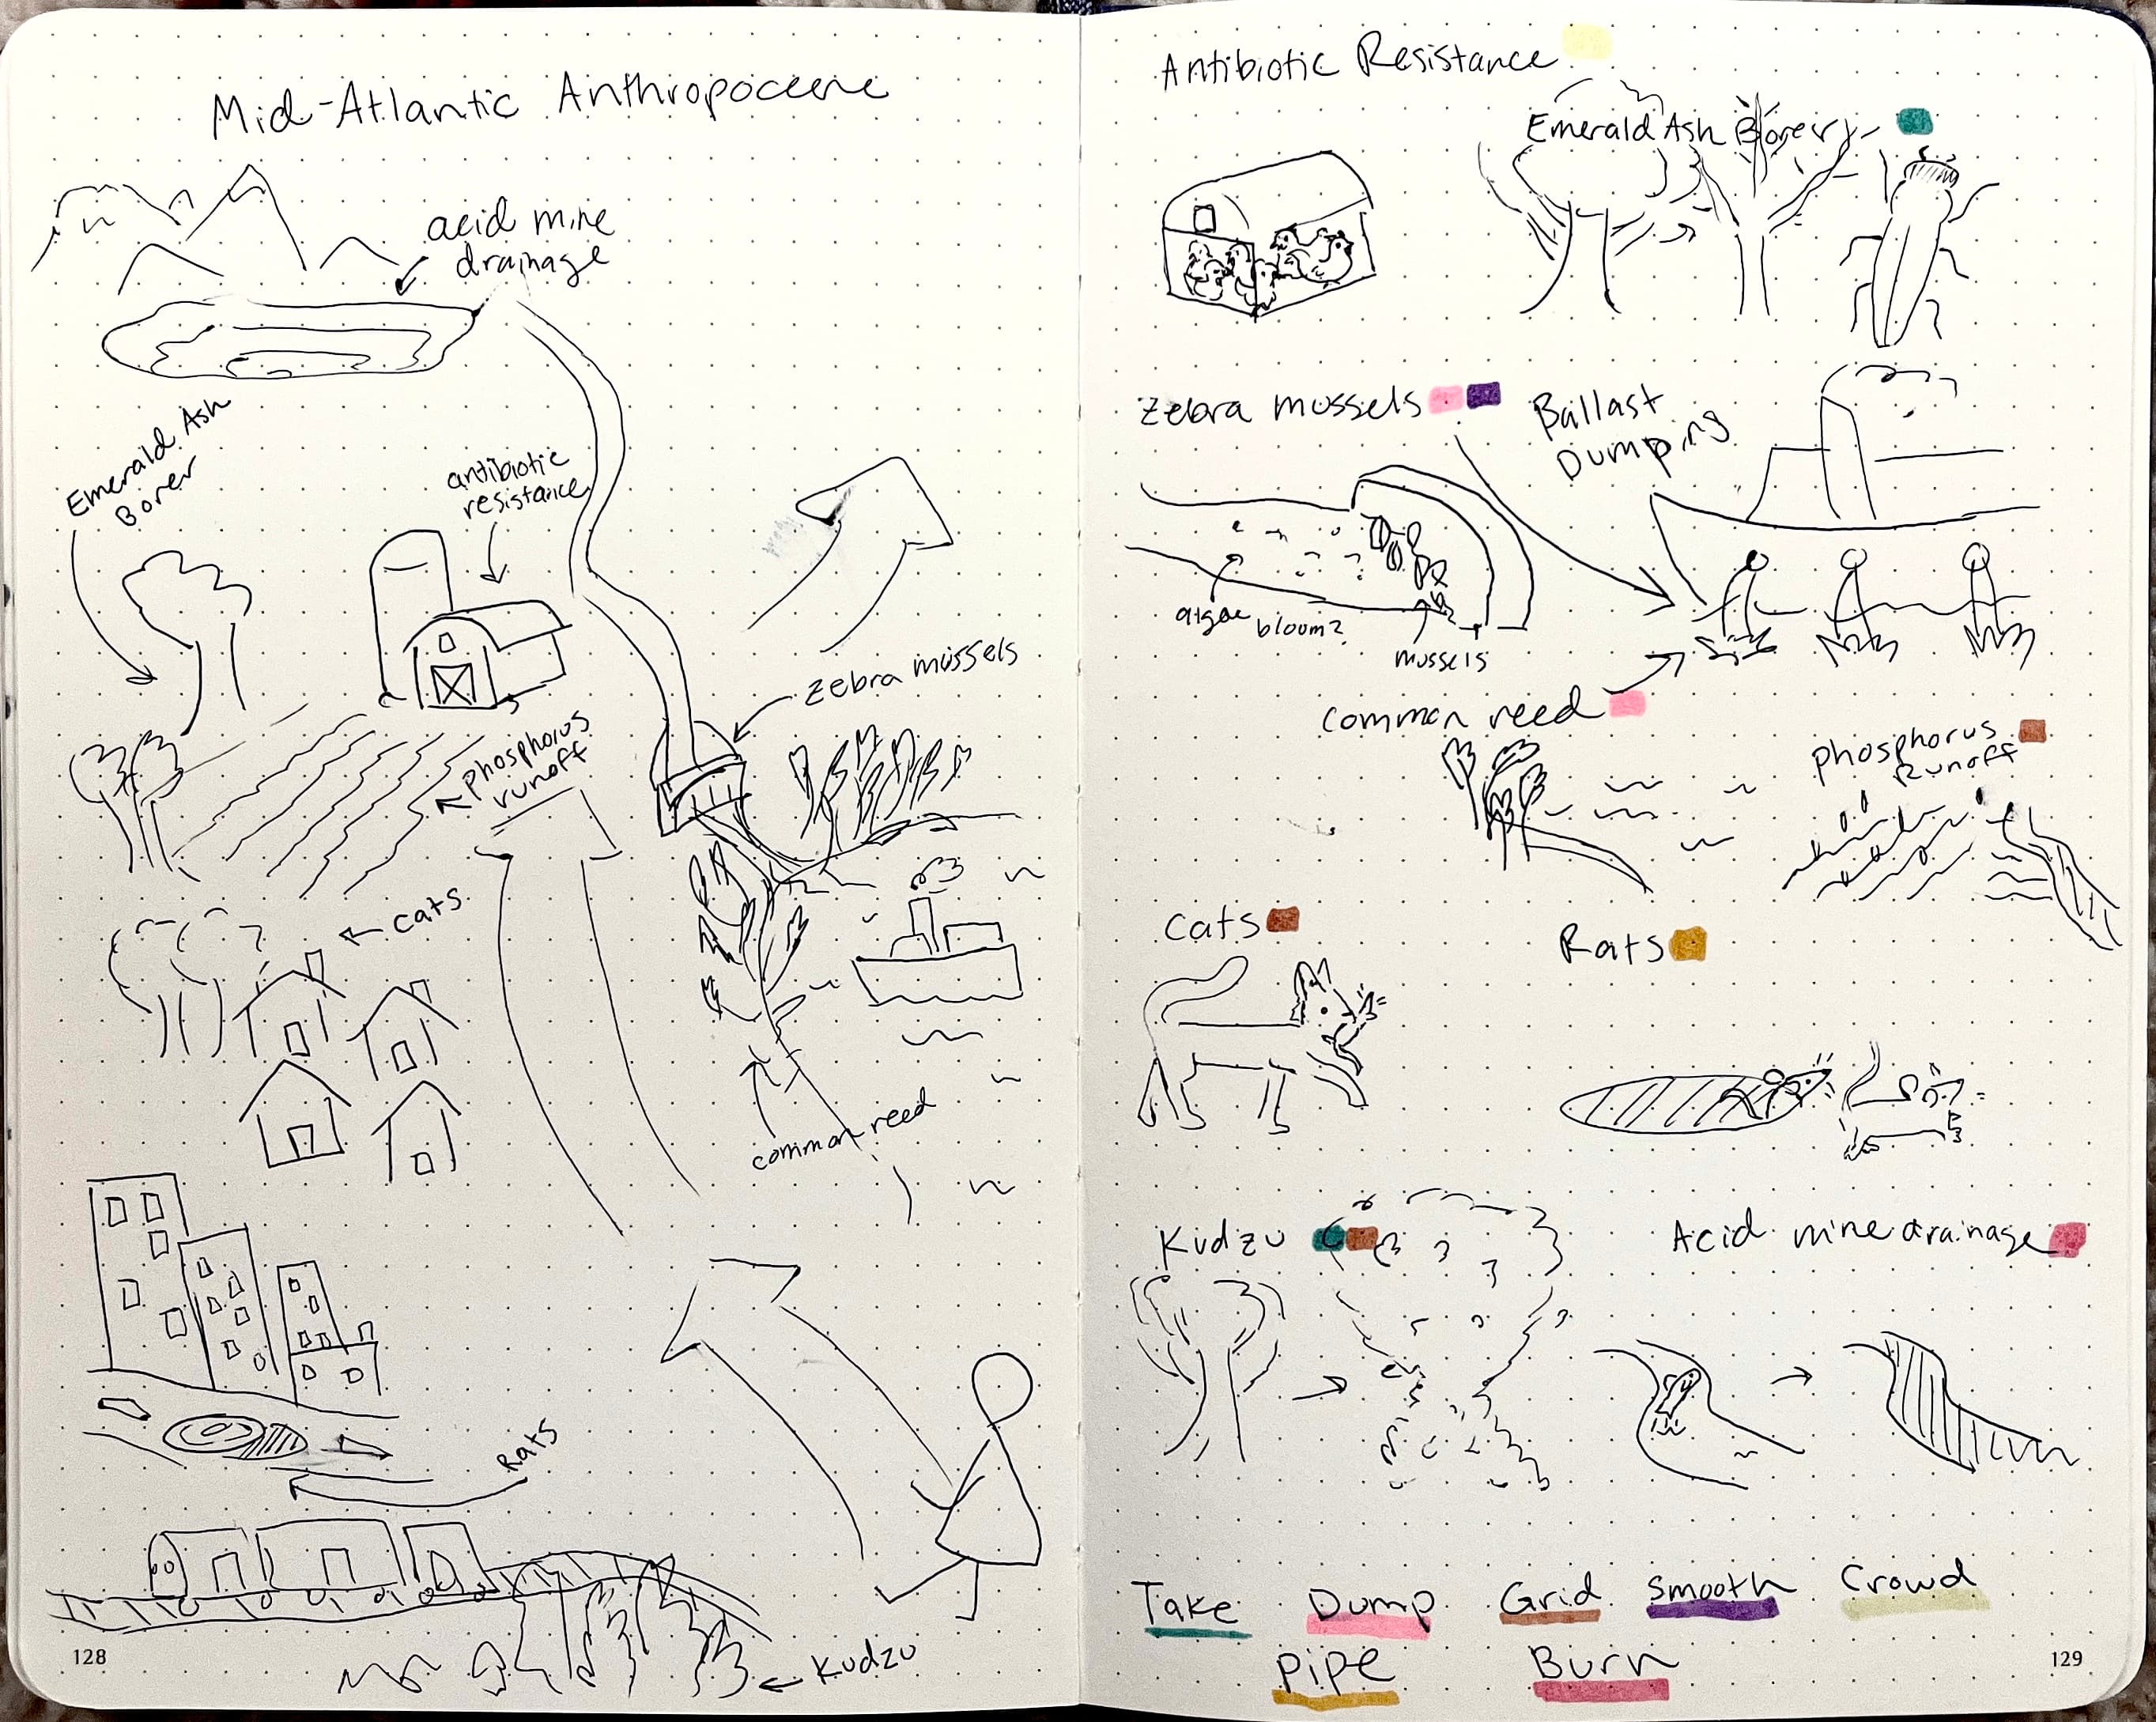 Mid-Atlantic Anthropocene
acid mine
drainage
Emerald Ash
Borer
antibiotic
resistance
zebra mussels
phosphorus
runoff
cats
common reed
Rats
Kudzu
128
Antibiotic Resistance
Emerald Ash Borer
Zebra mussels
Ballast
Dumping
algae bloom?
mussels
common reed
phosphorus
Runoff
Cats
Rats
Kudzu
Acid mine drainage
Take Dump Grid Smooth Crowd
Pipe Burn
129